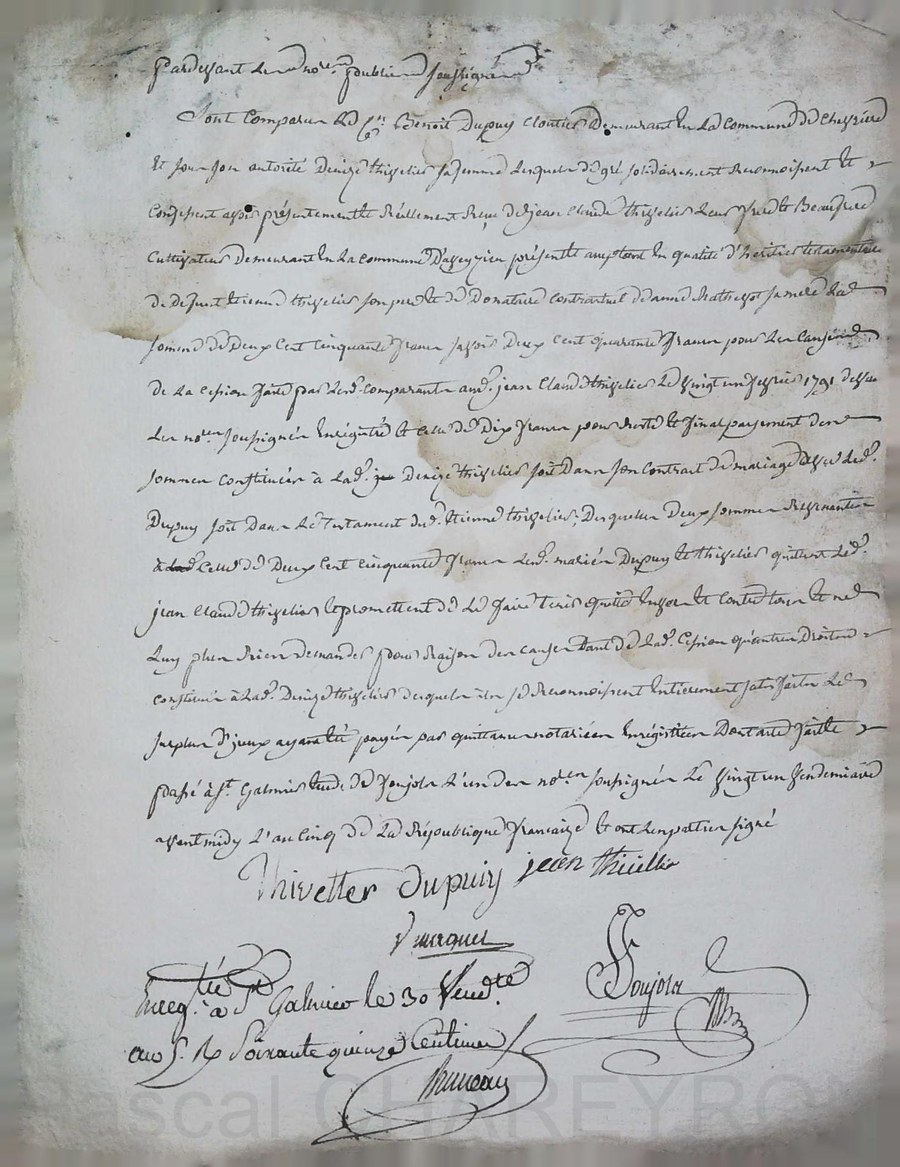 Pardevant Les nores publics soussignés
Sont Comparus Le Cen Benoit Dupuy Cloutier Demeurant En La Commune De Chevrieres
Et sous son autorité Denize thivelier sa femme Lesquels de gré solidairement Reconnoissent Et
Confessent avoir présentement Réellement Reçu de jean Claude thivelier Leur frere Et Beaufrere
Cultivateur Demeurant En La Commune D'aveyzieu présent Et acceptant En qualité d'heritier testamentaire
de Defunt Etienne thivelier son pere Et de Donataire Contractuel de anne sa mere La
somme De Deux Cent Cinquante francs savoir Deux Cent quarante francs pour Les Causes
de La Cession faite par Lesd. Comparants aud. jean Claude thivelier Le vingt un fevrier 1791 devant
Les nores soussignés Enregistré Et Celle De Dix francs pour Reste Et final payement des
sommes Constituées à Lad. Denize thivelier soit Dans son Contract De mariage avec Led.
Dupuy soit Dans Le Testament dud. Etienne thivelier, Desquelles Deux sommes Revenantes
à Celle De Deux Cent Cinquante francs Lesd. mariés Dupuy Et thivelier quittent Led.
jean Claude thivelier Et promettent de Le faire tenir quitte Envers Et Contre tous Et ne
Luy plus Rien demander pour Raison des Causes tant de Lad. Cession qu'autres Droits
constitués à Lad. Denize thivelier desquels ils se Reconnoissent Entierement satisfaits Le
surplus D'yceux ayant Eté payés par quittances notariées Enregistrées Dont acte fait Et
passé à St. Galmier Etude De Poujola L'un des nores soussignés Le vingt un vendemiaire
avant midy L'an Cinq De La République francaize Et ont Les parties signé
Thivellier Dupuiy jean thivellier
Poujola
Enregté. à St Galmier le 30 Vendre.
an 5. Rx Soixante quinze Centimes